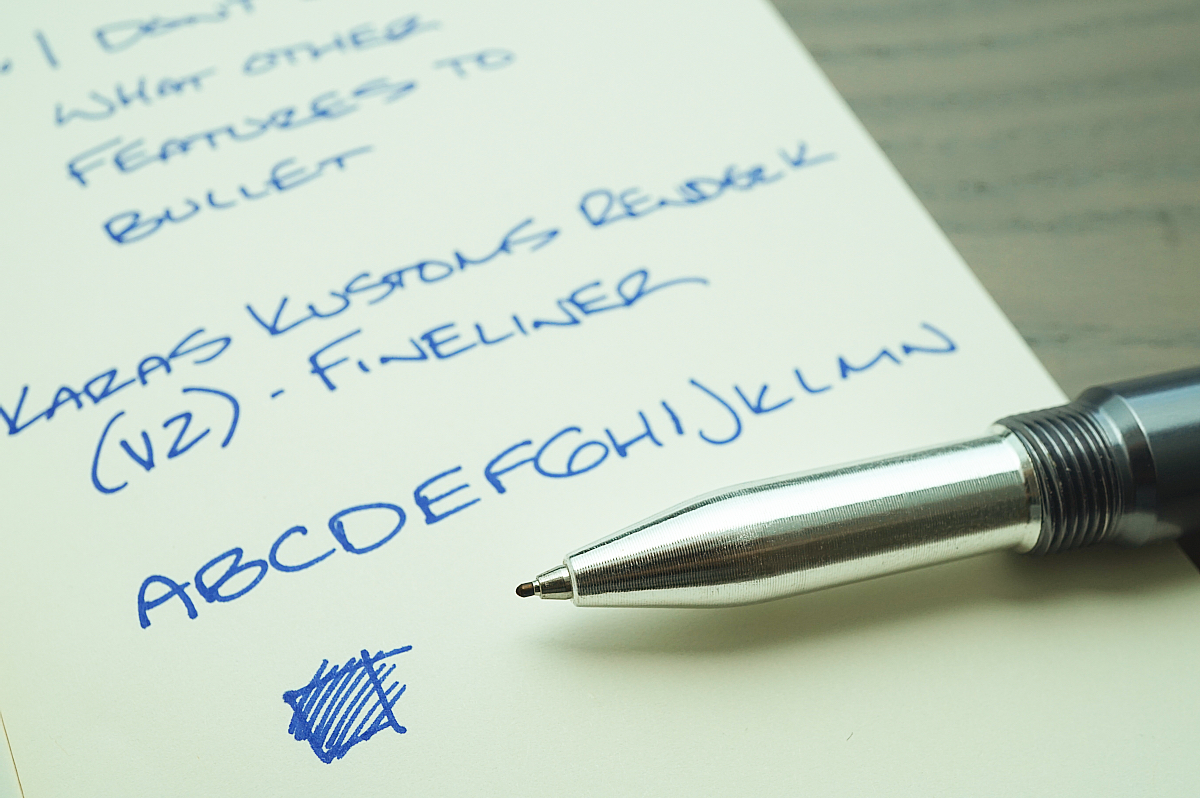 I DON'T
WHAT OTHER
FEATURES TO
BULLET
KARAS KUSTOMS RENDER K
(V2) - FINELINER
ABCDEFGHIJKLMN